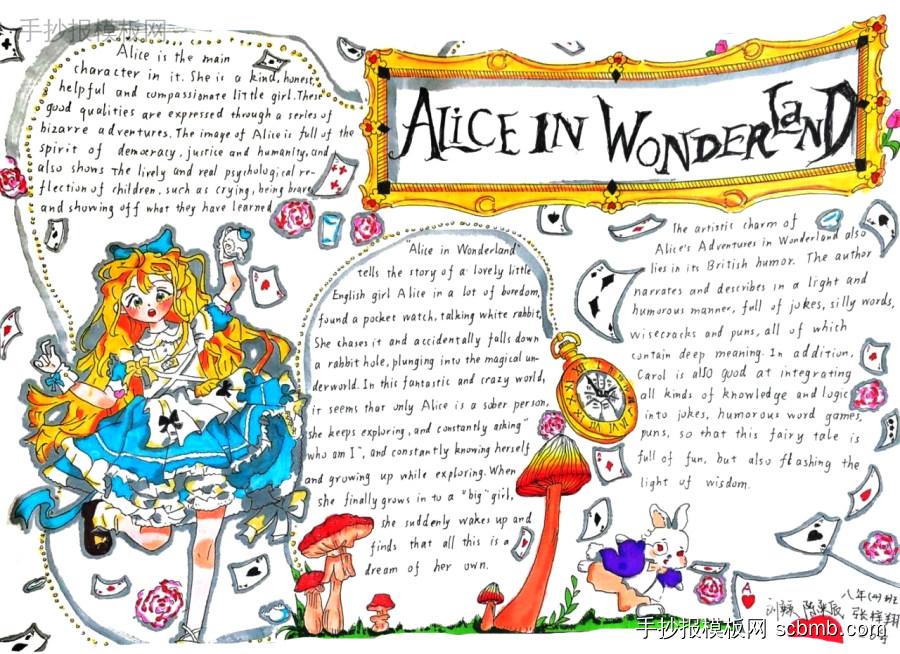 手抄报模板网
ALICE IN WONDERLAND
Alice is the main
character in it. She is a kind, honest
helpful and compassionate little girl. These
good qualities are expressed through a series of
bizarre adventures. The image of Alice is full of the
spirit of democracy, justice and humanity, and
also shows the lively and real psychological re-
flection of children, such as crying, being brave
and showing off what they have learned
"Alice in Wonderland"
tells the story of a lovely little
English girl Alice in a lot of boredom,
found a pocket watch, talking white rabbit,
She chases it and accidentally falls down
a rabbit hole, plunging into the magical un-
derworld. In this fantastic and crazy world,
it seems that only Alice is a sober person,
she keeps exploring, and constantly asking"
who am I", and constantly knowing herself
and growing up while exploring. When
she finally grows in to a "big" girl,
she suddenly wakes up and
finds that all this is a
dream of her own.
The artistic charm of
Alice's Adventures in Wonderland also
lies in its British humor. The author
narrates and describes in a light and
humorous manner, full of jokes, silly words,
wisecracks and puns, all of which
contain deep meaning. In addition,
Carol is also good at integrating
all kinds of knowledge and logic
into jokes, humorous word games,
puns, so that this fairy tale is
full of fun, but also flashing the
light of wisdom.
A
八年(四)班
张梓翔
手抄报模板网 scbmb.com